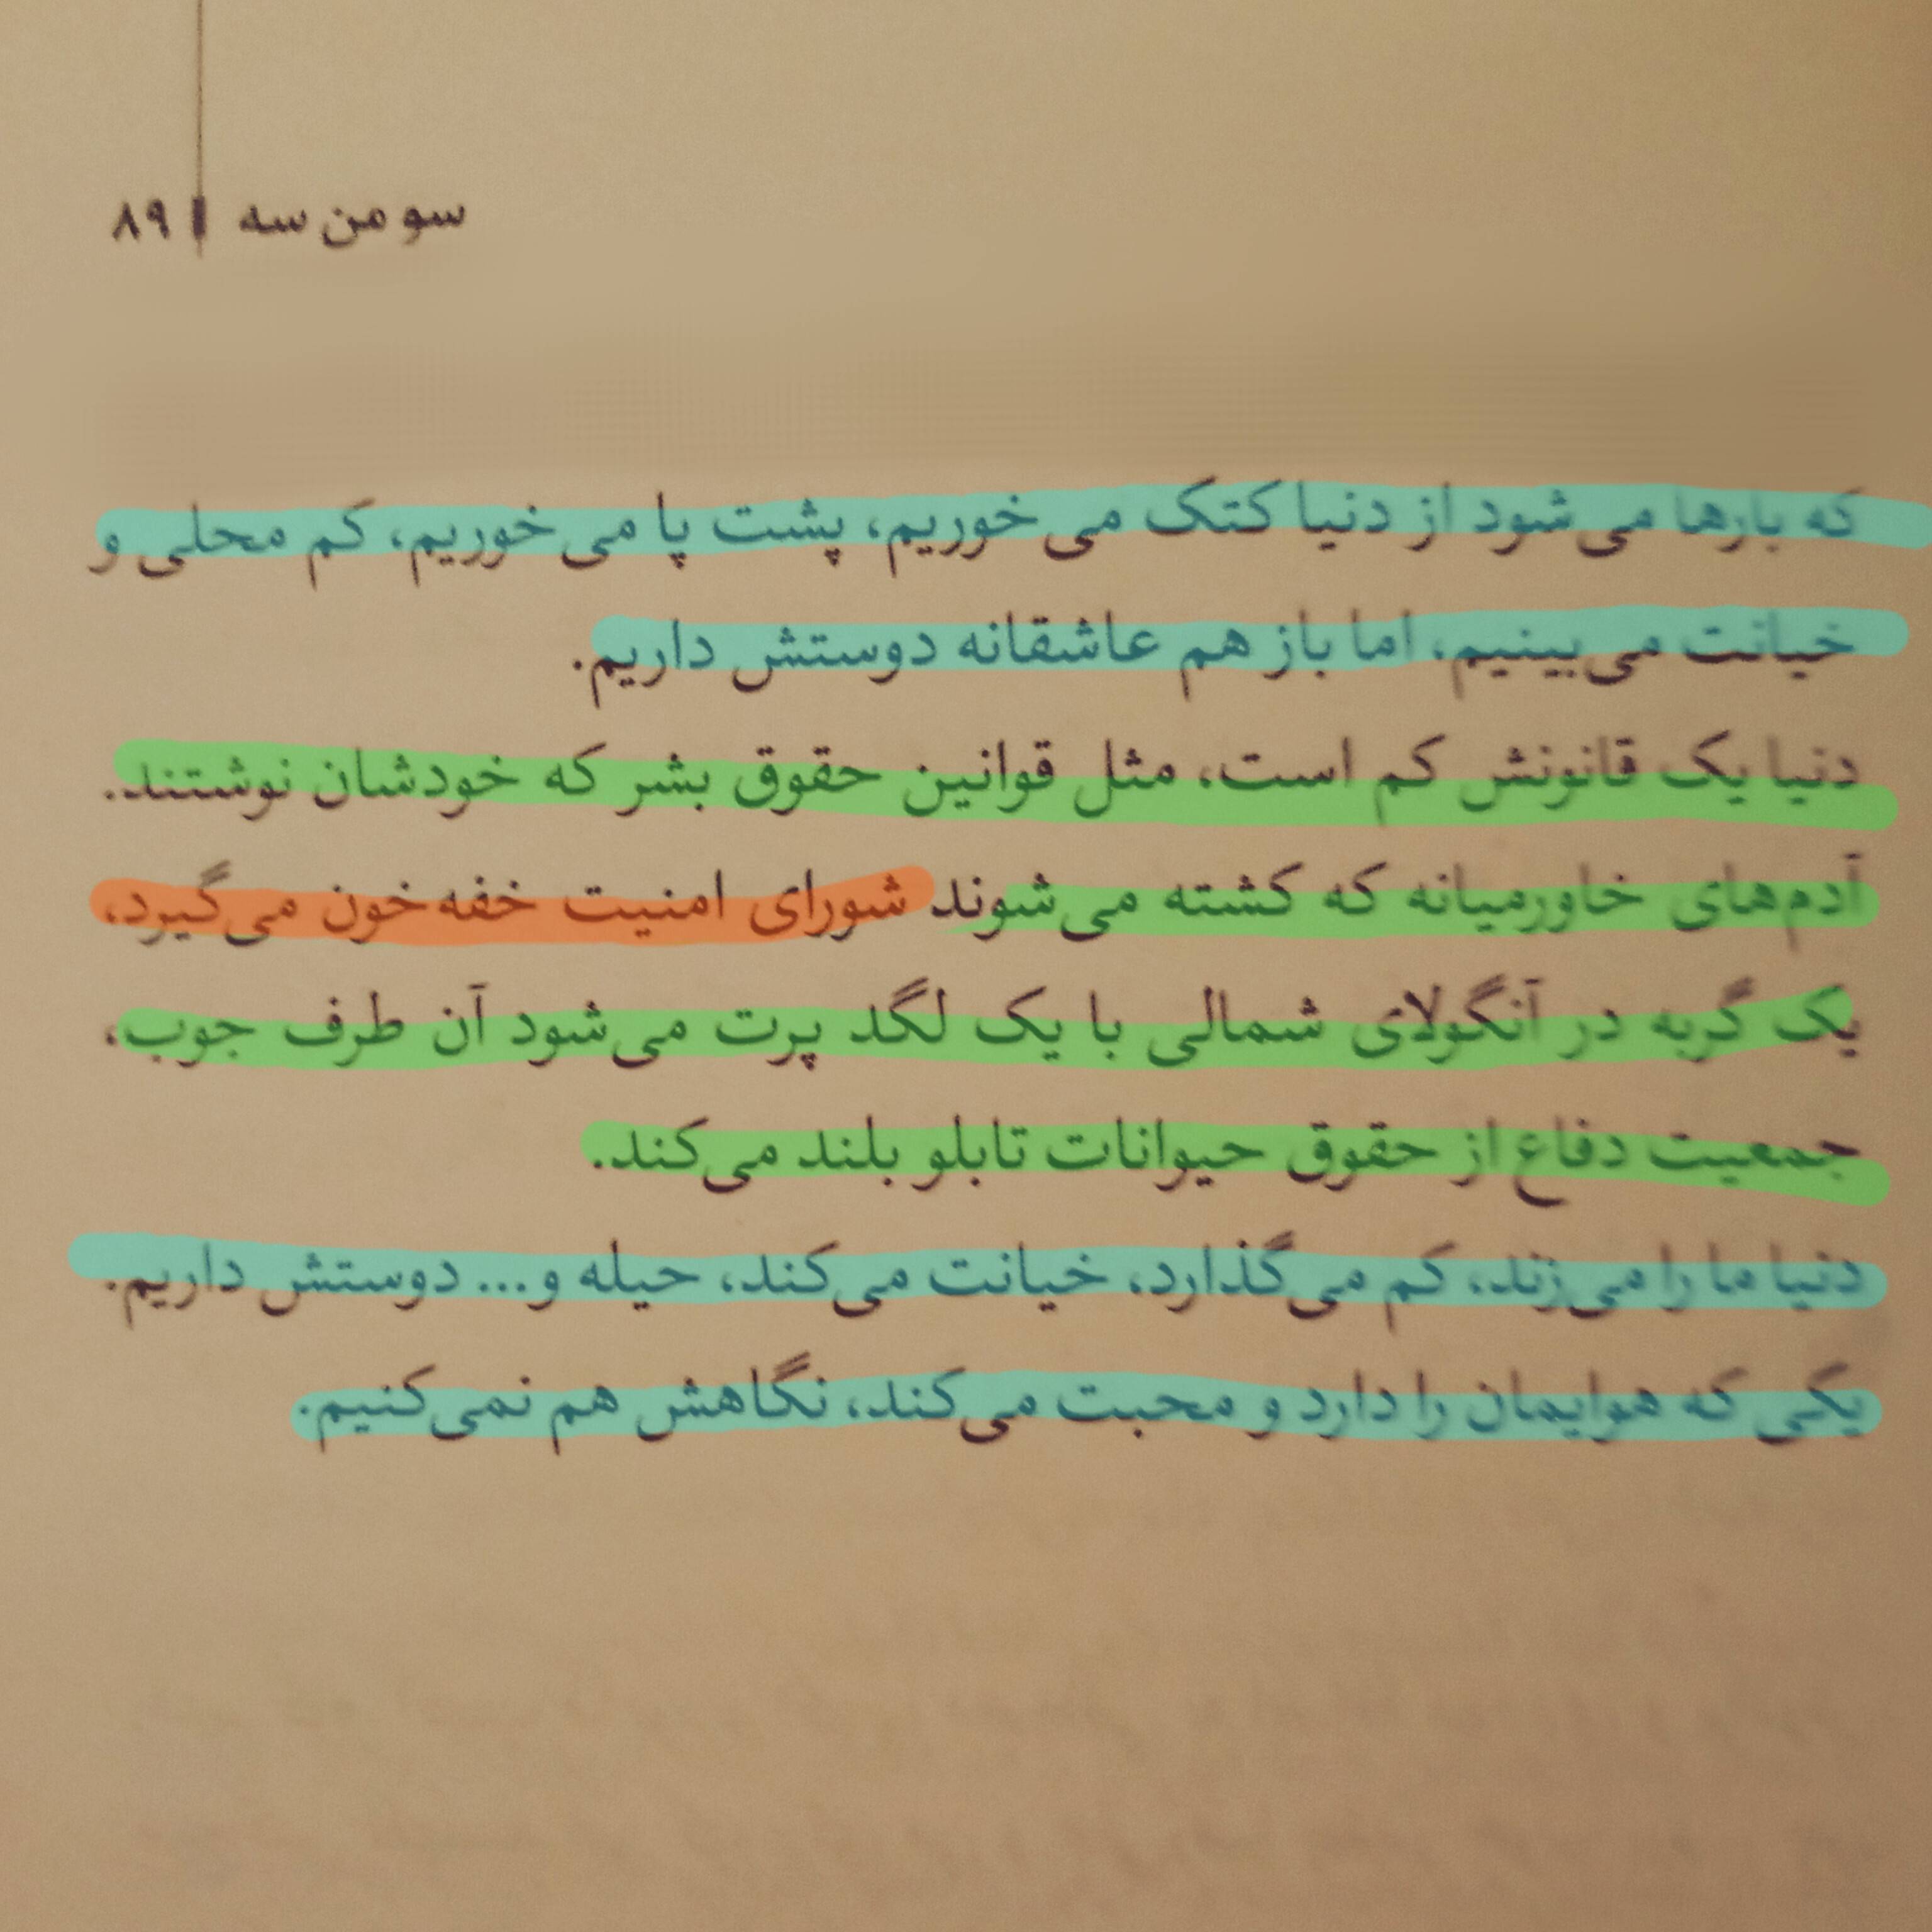 سو من سه | ۸۹
که بارها می‌شود از دنیا کتک می‌خوریم، پشت پا می‌خوریم، کم محلی و
خیانت می‌بینیم، اما باز هم عاشقانه دوستش داریم.
دنیا یک قانونش کم است، مثل قوانین حقوق بشر که خودشان نوشتند.
آدم‌های خاورمیانه که کشته می‌شوند شورای امنیت خفه‌خون می‌گیرد،
یک گربه در آنگولای شمالی با یک لگد پرت می‌شود آن طرف جوب،
جمعیت دفاع از حقوق حیوانات تابلو بلند می‌کند.
دنیا ما را می‌زند، کم می‌گذارد، خیانت می‌کند، حیله و... دوستش داریم.
یکی که هوایمان را دارد و محبت می‌کند، نگاهش هم نمی‌کنیم.